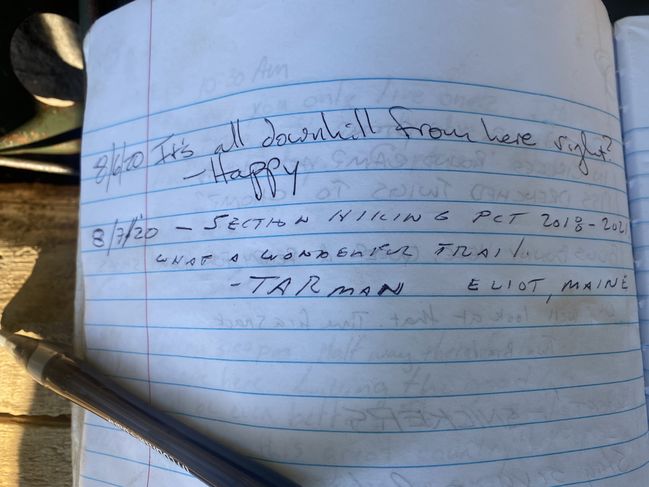 8/6/20 It's all downhill from here right?
- Happy
8/7/20 - SECTION HIKING PCT 2018-2021
WHAT A WONDERFUL TRAIL.
- TARMAN ELIOT, MAINE